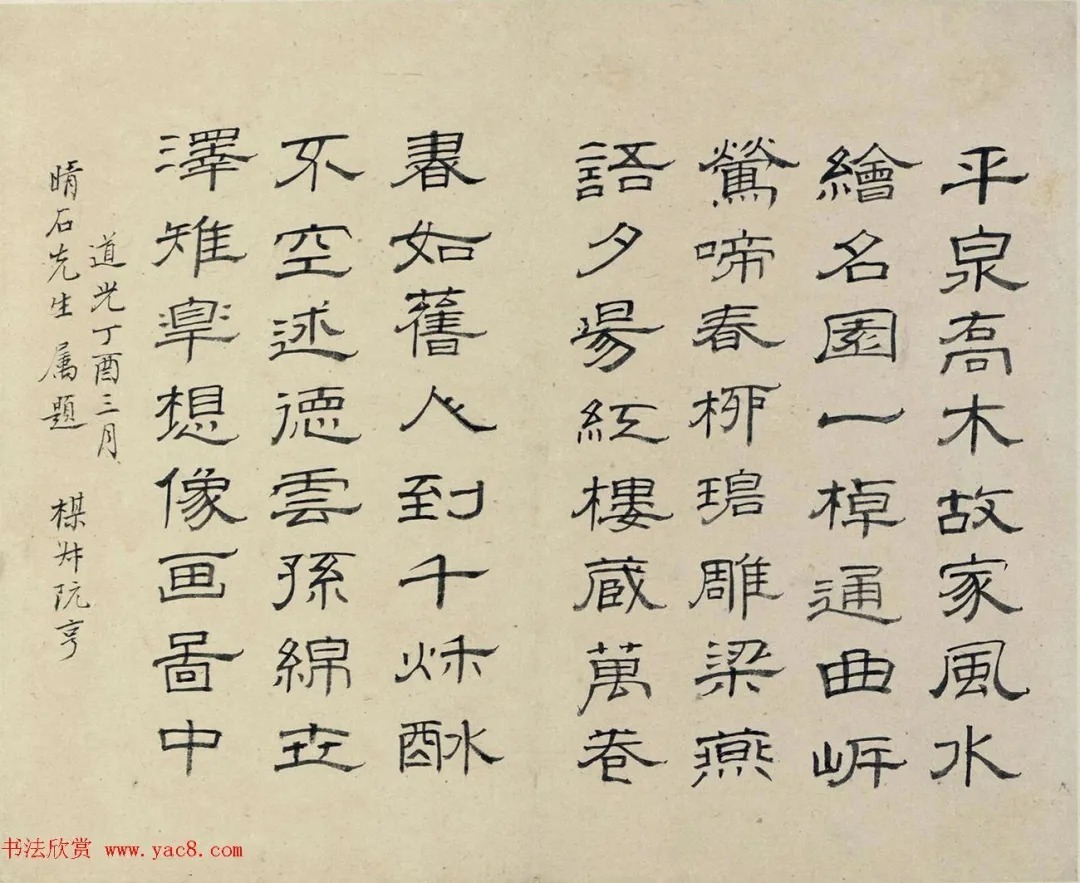 平泉高木故家風水
繪名園一棹通曲岸
鶯啼春柳碧雕梁燕
語夕陽紅樓藏萬卷
書如舊人到千秌
不空述德雲孫綿世
澤雉皐想像画啚中
道光丁酉三月
晴石先生属題 楳叔阮亨
书法欣赏 www.yac8.com